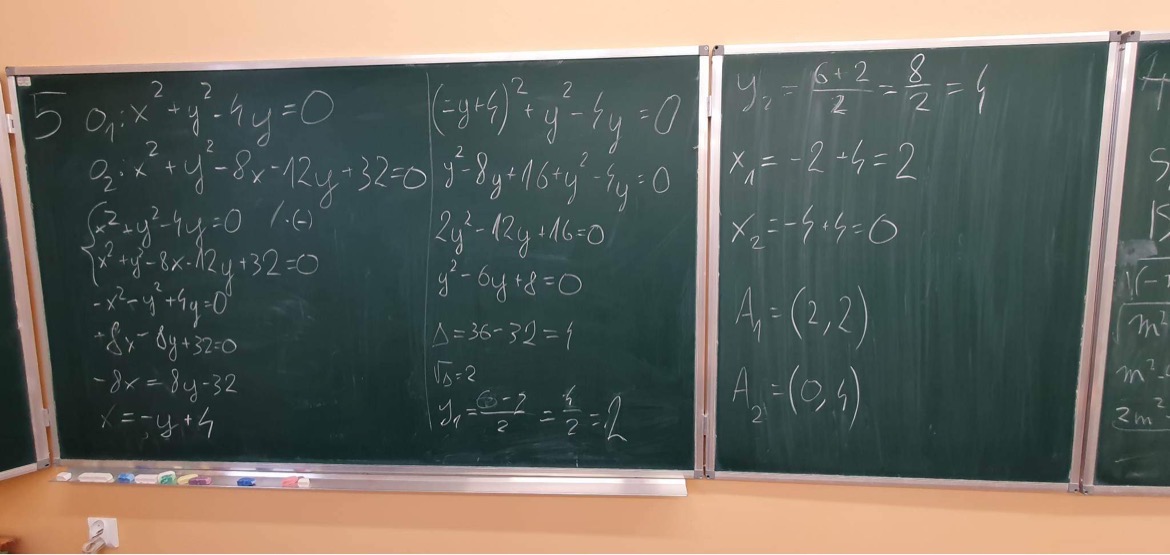 5 O₁: x² + y² - 4y = 0
O₂: x² + y² - 8x - 12y + 32 = 0
{ x² + y² - 4y = 0 / · (-)
{ x² + y² - 8x - 12y + 32 = 0
-x² - y² + 4y = 0
+8x - 8y + 32 = 0
-8x = 8y - 32
x = -y + 4
(-y + 4)² + y² - 4y = 0
y² - 8y + 16 + y² - 4y = 0
2y² - 12y + 16 = 0
y² - 6y + 8 = 0
Δ = 36 - 32 = 4
√Δ = 2
y₁ = (6 - 2)/2 = 4/2 = 2
y₂ = (6 + 2)/2 = 8/2 = 4
x₁ = -2 + 4 = 2
x₂ = -4 + 4 = 0
A₁ = (2, 2)
A₂ = (0, 4)
m²
m²
2m²